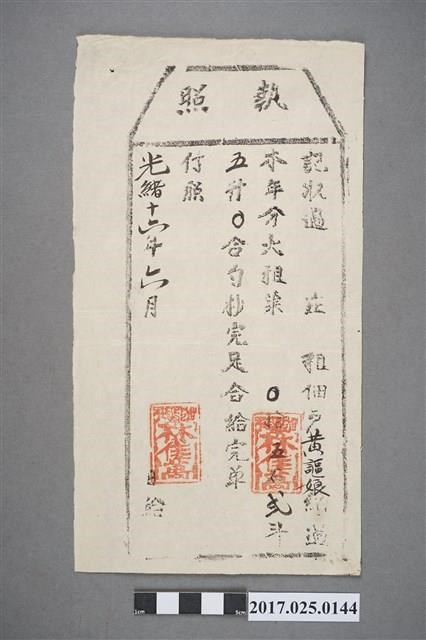 執照
記收過 莊 租佃戶黃謳娘納過
本年分大租粟 〇拾五石弍斗
五升〇合勺抄完足合給完單
付照
光緒十六年六月 日給
林佳
1cm
5cm
2017.025.0144